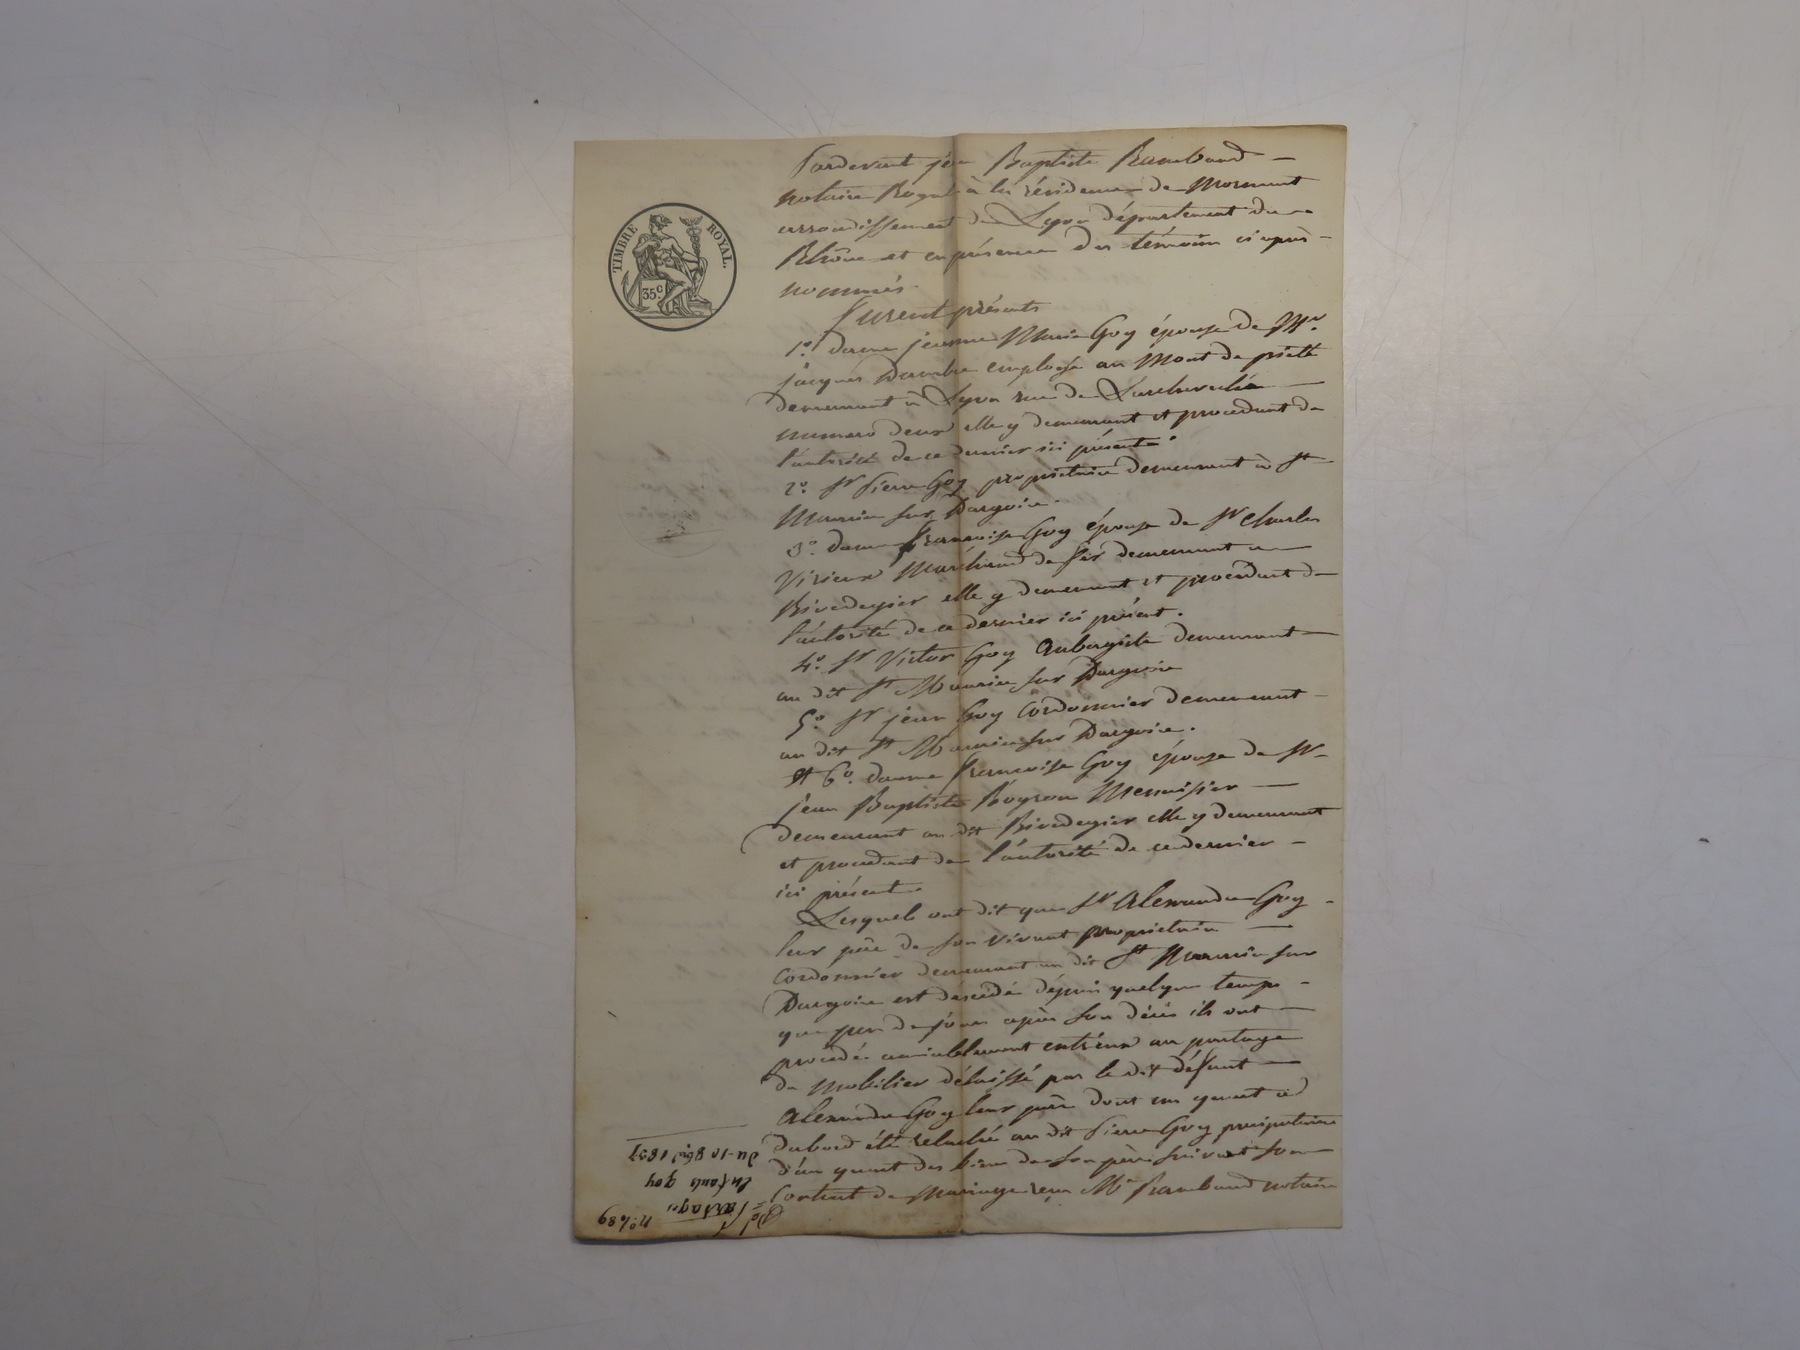 TIMBRE ROYAL.
35c
Pardevant jean Baptiste Rambaud
notaire Royal à la résidence de Mornant
arrondissement de Lyon département du
Rhône et en présence des témoins ci après
nommés.
furent présents
1º. dame jeanne Marie Goy épouse de Mr.
jacques employé au Mont de piété
demeurant à Lyon rue de Larchevêché
numero deux elle y demeurant et procédant de
l'autorité de ce dernier ici présent.
2º. Sr Pierre Goy propriétaire demeurant à St
Maurice sur Dargoire.
3º. dame francoise Goy épouse de Sr Charles
Virieux Marchand de fer demeurant a
Rivedegier elle y demeurant et procédant de
l'autorité de ce dernier ici présent.
4º. Sr Victor Goy Aubergiste demeurant
au dit St Maurice sur Dargoire
5º. Sr jean Goy Cordonnier demeurant
au dit St Maurice sur Dargoire.
et 6º. dame francoise Goy épouse de Sr
jean Baptiste Menuisier
demeurant au dit Rivedegier elle y demeurant
et procédant de l'autorité de ce dernier
ici présent.
Lesquels ont dit que Sr Alexandre Goy
leur père de son vivant propriétaire
Cordonnier demeurant au dit St Maurice sur
Dargoire est décédé depuis quelque temps
que peu de jours après son décès ils ont
procédé amiablement entreux au partage
du Mobilier délaissé par le dit défunt
Alexandre Goy leur père dont un quart a
dabord été relaché au dit Pierre Goy preciputaire
d'un quart des biens de son père suivant son
Contrat de Mariage reçu Me Rambaud notaire
nº 489
Partages
Enfants goy
du 10 8bre 1837